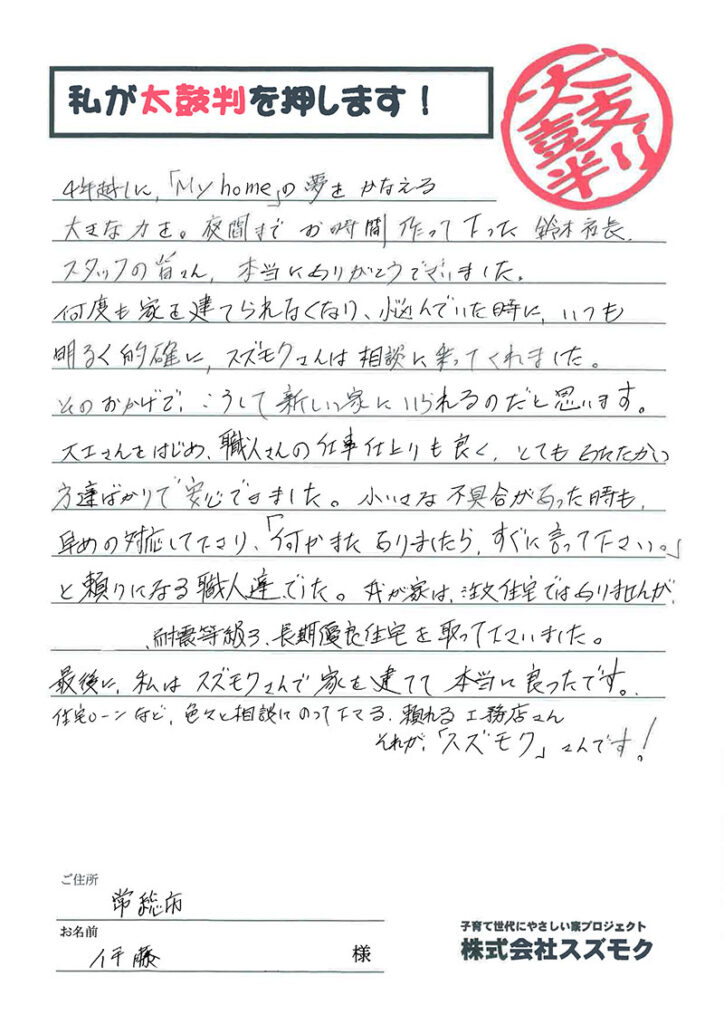 私が太鼓判を押します！
太鼓判
4年越しに、「My home」の夢を かなえる
大きな力を。夜間まで お時間 作って下さった 鈴木社長、
スタッフの皆さん、本当にありがとうございました。
何度も家を建てられなくなり、悩んでいた時に、いつも
明るく的確に、スズモクさんは相談に乗ってくれました。
そのおかげで、こうして新しい家にいられるのだと思います。
大工さんをはじめ、職人さんの仕事仕上りも良く、とてもあたたかい
方達ばかりで安心できました。小いさな不具合があった時も、
早めの対応して下さり、「何かまた ありましたら、すぐに言って下さい。」
と頼りになる職人達でした。我が家は、注文住宅ではありませんが、
、耐震等級3、長期優良住宅を取って下さいました。
最後に、私はスズモクさんで家を建てて本当に良ったです。
住宅ローンなど、色々と相談にのって下さる、頼れる工務店さん
それが、「スズモク」さんです！
ご住所
常総市
お名前
伊藤 様
子育て世代にやさしい家プロジェクト
株式会社スズモク